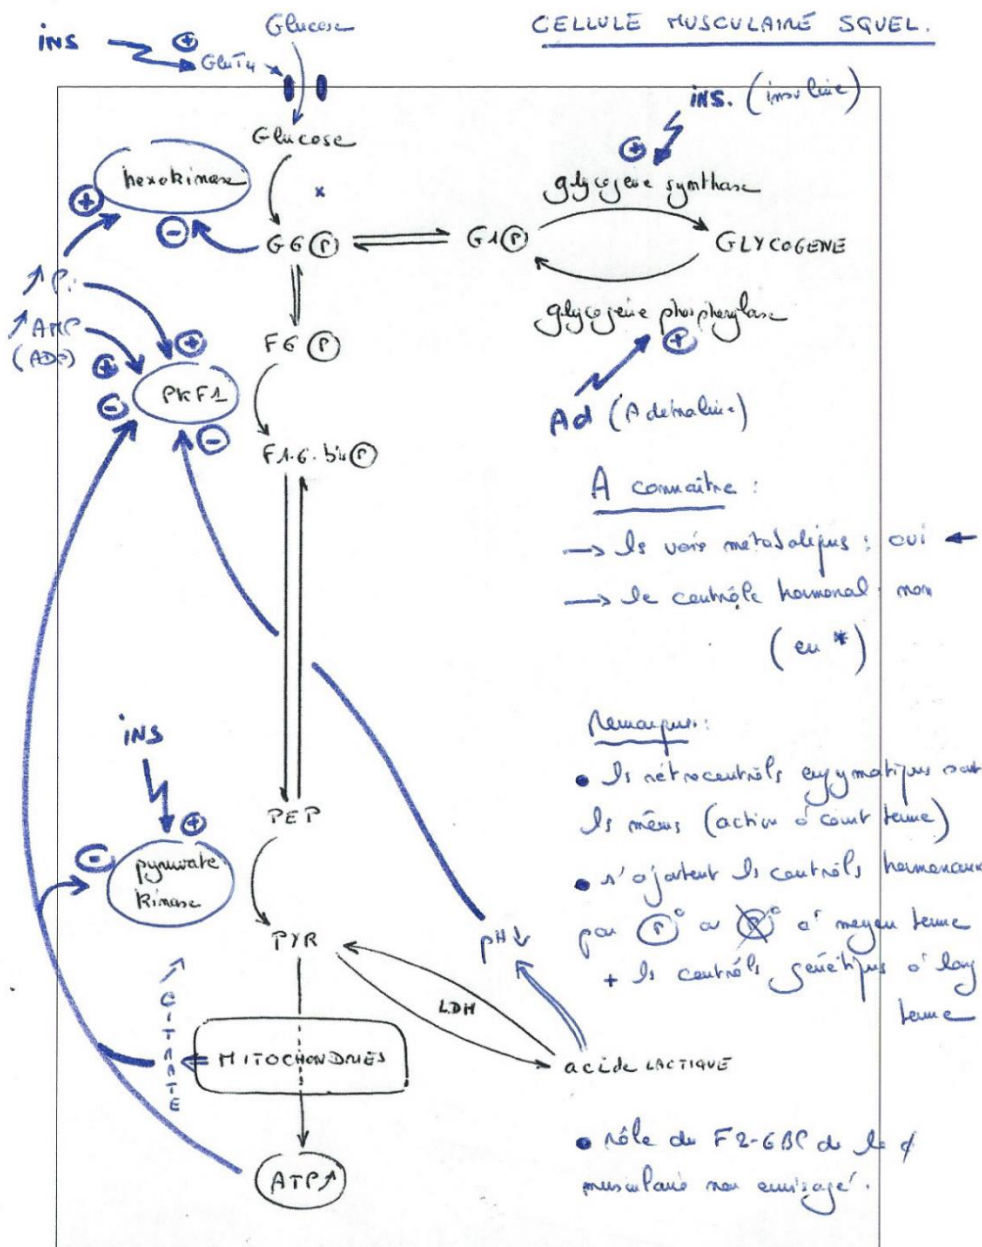 CELLULE MUSCULAIRE SQUEL.
INS
+
Glucose
GluT4
ins. (insuline)
Glucose
hexokinase
+
-
x
+
glycogène synthase
G6(P)
G1(P)
GLYCOGENE
glycogène phosphorylase
+
Ad (Adrénaline)
↗ Pi
↗ AMP
(ADP)
+
+
-
-
PKF1
F6(P)
F1-6-bis(P)
A connaître :
→ les voies métaboliques : oui ←
→ le contrôle hormonal non
(en *)
Remarques :
• les rétrocontrôles enzymatiques sont
les mêmes (action à court terme)
• s'ajoutent les contrôles hormonaux
par (P)° ou (P)° à moyen terme
+ les contrôles génétiques à long
terme
INS
+
-
pyruvate
kinase
PEP
PYR
pH ↓
LDH
CITRATE
MITOCHONDRIES
acide LACTIQUE
ATP↗
• rôle du F2-6BP de le ¢
musculaire non envisagé.